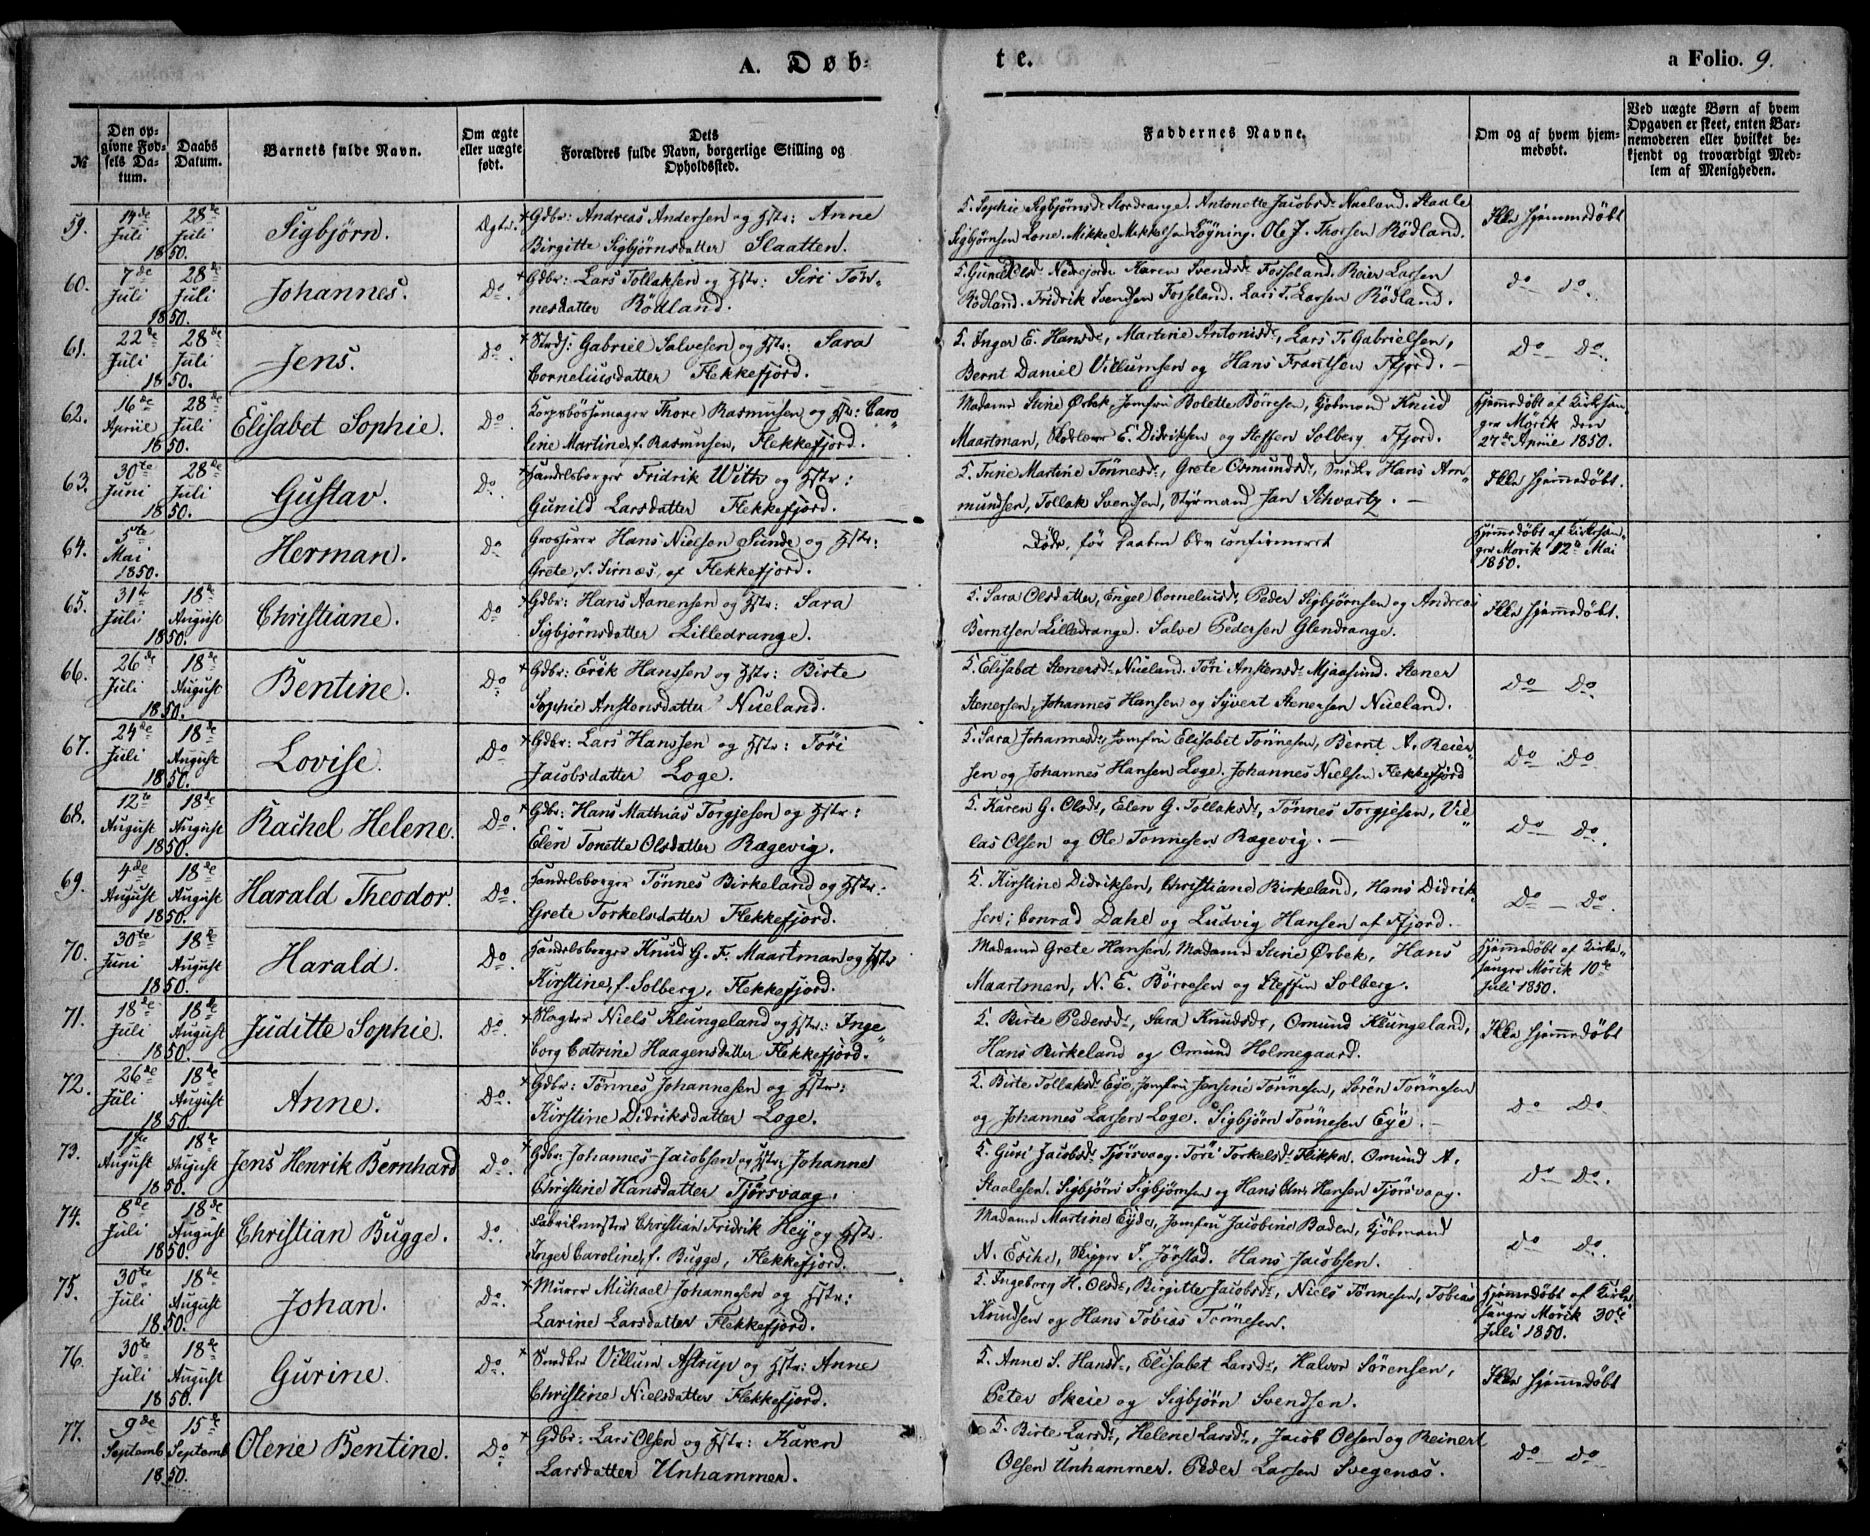 A. Døb-
te.
a Folio. 9.
№
Den op-
givne Fød-
sels Da-
tum.
Daabs
Datum.
Barnets fulde Navn.
Om ægte
eller uægte
født.
Dets
Forældres fulde Navn, borgerlige Stilling og
Opholdssted.
Faddernes Navne.
Om og af hvem hjem-
medøbt.
Ved uægte Børn af hvem
Opgaven er skeet, enten Bar-
nemoderen eller hvilket be-
kjendt og troværdigt Med-
lem af Menigheden.
59. 14de Juli 1850. 28de Juli Sigbjørn. Ægte. Gdbr: Andreas Andersen og Hstr: Anne
Birgitte Sigbjørnsdatter Slaatten.
5. Sophie Sigbjørnsd: Stordrange. Antonette Jacobsd: Nueland. Staale
Sigbjørnsen Lone. Mikkel Mikkelsen Løyning. Ole J. Thorsen Rødland.
Ikke hjemmedøbt
60. 7de Juli 1850. 28de Juli Johannes. Do. Gdbr: Lars Tollaksen og Hstr: Siri Tøn-
nesdatter Rødland.
Nedrejord. Karen Svendsd: Fosseland. Reier Larsen
Rødland. Fridrik Svendsen Fosseland. Lars T. Larsen Rødland.
do do.
61. 22de Juli 1850. 28de Juli Jens. Do. Gabriel Salvesen og Hstr: Sara
Corneliusdatter Flekkefjord.
5. Inger E. Hansd:, Martine Antonisd:, Lars T. Gabrielsen,
Bernt Daniel Villumsen og Hans Frantsen Ffjord.
Do Do.
62. 16de Aprile 1850. 28de Juli Elisabet Sophie. Do. Korpsbøssemager Thore Rasmusen og Hstr: Caro
line Martine, f. Rasmusen, Flekkefjord.
Madame Sine Ørbek, Jomfru Bolette Børresen, Kjøbmand Knud
Maartman, E. Didriksen og Steffen Solberg Ffjord.
Hjemmedøbt af Kirkesan-
ger Mørik den
27de Aprile 1850.
63. 30te Juni 1850. 28de Juli Gustav. Do. Handelsborger Fridrik With og Hstr:
Gunild Larsdatter Flekkefjord.
5. Trine Martine Tønnesd:, Grete Osmundsd:, Smed Hans Am-
mundsen, Tollak Svendsen, Styrmand Jan Schvartz.
Ikke hjemmedøbt.
64. 5te Mai 1850. Herman. Do Grosserer Hans Nielsen Sunde og Hstr:
Grete, f. Sirnæs, af Flekkefjord.
Døde, før Daaben blev confirmeret
Hjemmedøbt af Kirkesan-
ger Mørik 12te Mai
1850.
65. 31te Juli 1850. 18de August Christiane. Do Gdbr: Hans Aanensen og Hstr: Sara
Sigbjørnsdatter Lilledrange.
5. Sara Olsdatter, Engel Corneliusd: Peder Sigbjørnsen og Andreas
Berntsen Lilledrange. Salve Pedersen Glendrange.
Ikke hjemmedøbt.
66. 26de Juli 1850. 18de August Bentine. Do Gdbr: Erik Hanssen og Hstr: Birte
Sophie Anstensdatter Nueland.
5. Elisabet Stenersd: Nueland. Tøri Anstensd: Mjaasund. Stener
Stenersen, Johannes Hansen og Syvert Stenersen Nueland.
Do Do.
67. 24de Juli 1850. 18de August Lovise. Do Gdbr: Lars Hanssen og Hstr: Tøri
Jacobsdatter Loge.
5. Sara Johannesd:, Jomfru Elisabet Tønnesen, Bernt A. Reier
sen og Johannes Hansen Loge. Johannes Nielsen Flekkefjord
Do Do
68. 12te August 1850. 18de August Rachel Helene. Do. Gdbr: Hans Mathias Torgjesen og Hstr:
Elen Tonette Olsdatter Rægevig.
5. Karen G. Olsd:, Elen G. Tollaksd:, Tønnes Torgjesen, Vil
las Olsen og Ole Tønnesen Rægevig.
Do Do.
69. 4de August 1850. 18de August Harald Theodor. Do. Handelsborger Tønnes Birkeland og Hstr:
Grete Torkelsdatter Flekkefjord.
5. Kirstine Didriksen, Christiane Birkeland, Hans Didrik
sen, Conrad Dahl og Ludvig Hansen af Ffjord.
Do Do.
70. 30te Juni 1850. 18de August Harald. Do. Handelsborger Knud G. F. Maartman og Hstr
Kirstine, f. Solberg, Flekkefjord.
Madame Grete Hansen, Madame Sine Ørbek, Hans
Maartman, N. E. Børresen og Steffen Solberg.
Hjemmedøbt af Kirke-
sanger Mørik 10de
Juli 1850.
71. 18de Juli 1850. 18de August Juditte Sophie. Do. Slagter Niels Klungeland og Hstr: Inge
borg Catrine Haagensdatter Flekkefjord.
5. Birte Pedersd:, Sara Knudsd:, Omund Klungeland,
Hans Birkeland og Omund Holmegaard.
Ikke hjemmedøbt
72. 26de Juli 1850. 18de August Anne. Do. Gdbr: Tønnes Johannesen og Hstr:
Kirstine Didriksdatter Loge.
5. Birte Tollaksd: Eye, Jomfru Jensine Tønnesen, Søren Tønnesen
og Johannes Larsen Loge. Sigbjørn Tønnesen Eye.
Do Do.
73. 1ste August 1850. 18de August Jens Henrik Bernhard Do. Gdbr: Johannes Jacobsen og Hstr: Johanne
Christine Hansdatter Tjørsvaag.
5. Guri Jacobsd: Tjørsvaag. Tøri Torkelsd: Flikka. Omund A.
Staalesen. Sigbjørn Sigbjørnsen og Hans Chr. Hansen Tjørsvaag.
Do Do.
74. 8de Juli 1850. 18de August Christian Bugge. Do. Fabrikmester Christian Fridrik Hey og Hstr.
Inger Caroline, f. Bugge, Flekkefjord.
Madame Martine Eyde, Jomfru Jacobine Baden, Kjøbmand
A. Skipper J. Jørstad. Hans Jacobsen.
Do Do.
75. 30te Juli 1850. 18de August Johan. Do. Murer Michael Johannesen og Hstr:
Larine Larsdatter Flekkefjord.
5. Ingeborg H. Olsd:, Birgitte Jacobsd:, Niels Tønnesen, Tobias
Knudsen og Hans Tobias Tønnesen.
Hjemmedøbt af Kirke
sanger Mørik 30te
Juli 1850.
76. 30te Juli 1850. 18de August Gurine. Do. Smed Villum Astrup og Hstr: Anne
Christine Nielsdatter Flekkefjord.
5. Anne S. Hansd:, Elisabet Larsd:, Halvor Sørensen,
Peter Skeie og Sigbjørn Svendsen.
Ikke hjemmedøbt
77. 9de Septemb 1850. 15de Septemb Olene Bentine. Do Gdbr: Lars Olsen og Hstr: Karen
Larsdatter Unhammer.
5. Birte Larsd:, Helene Larsd:, Jacob Olsen og Reinert
Olsen Unhammer. Peder Larsen Svegenæs.
Do Do.